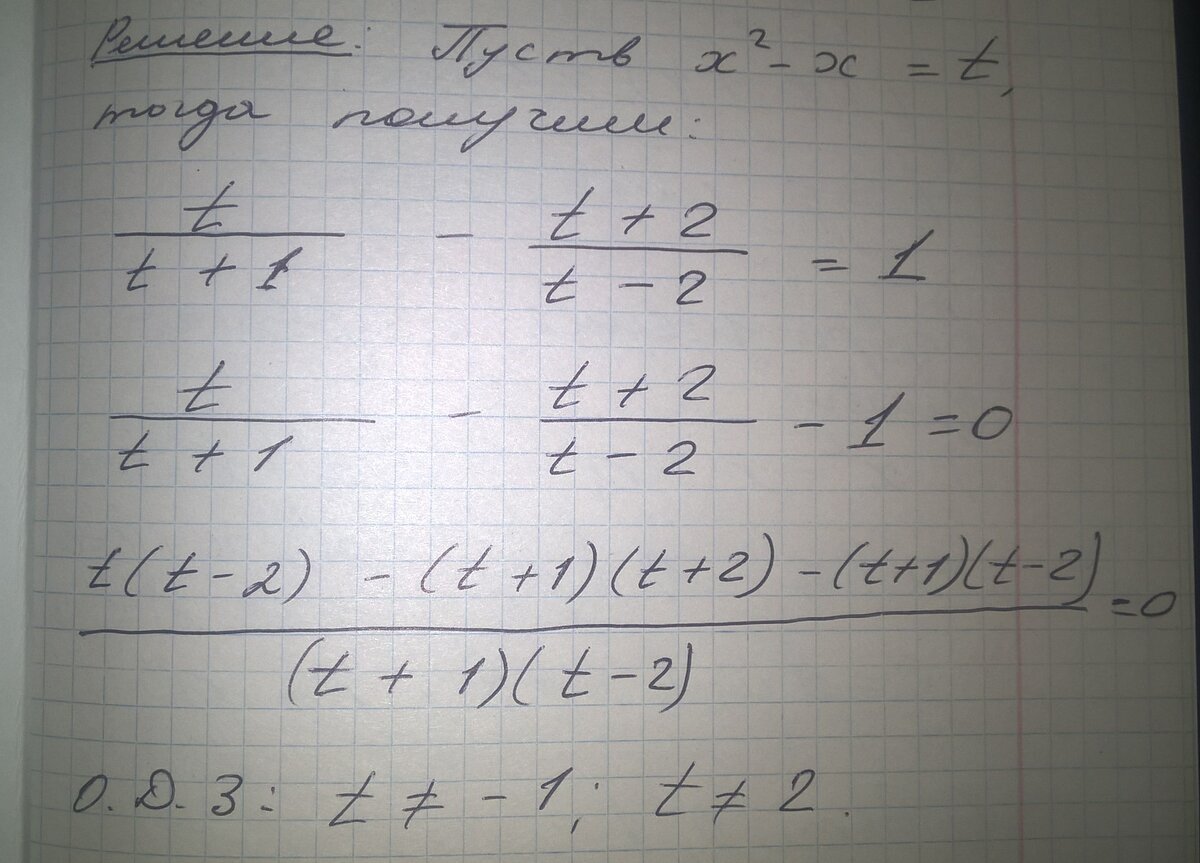 Решение: Пусть x² - x = t,
тогда получим:
t / (t + 1) - (t + 2) / (t - 2) = 1
t / (t + 1) - (t + 2) / (t - 2) - 1 = 0
(t(t - 2) - (t + 1)(t + 2) - (t+1)(t-2)) / ((t + 1)(t - 2)) = 0
О.Д.З: t ≠ -1; t ≠ 2.